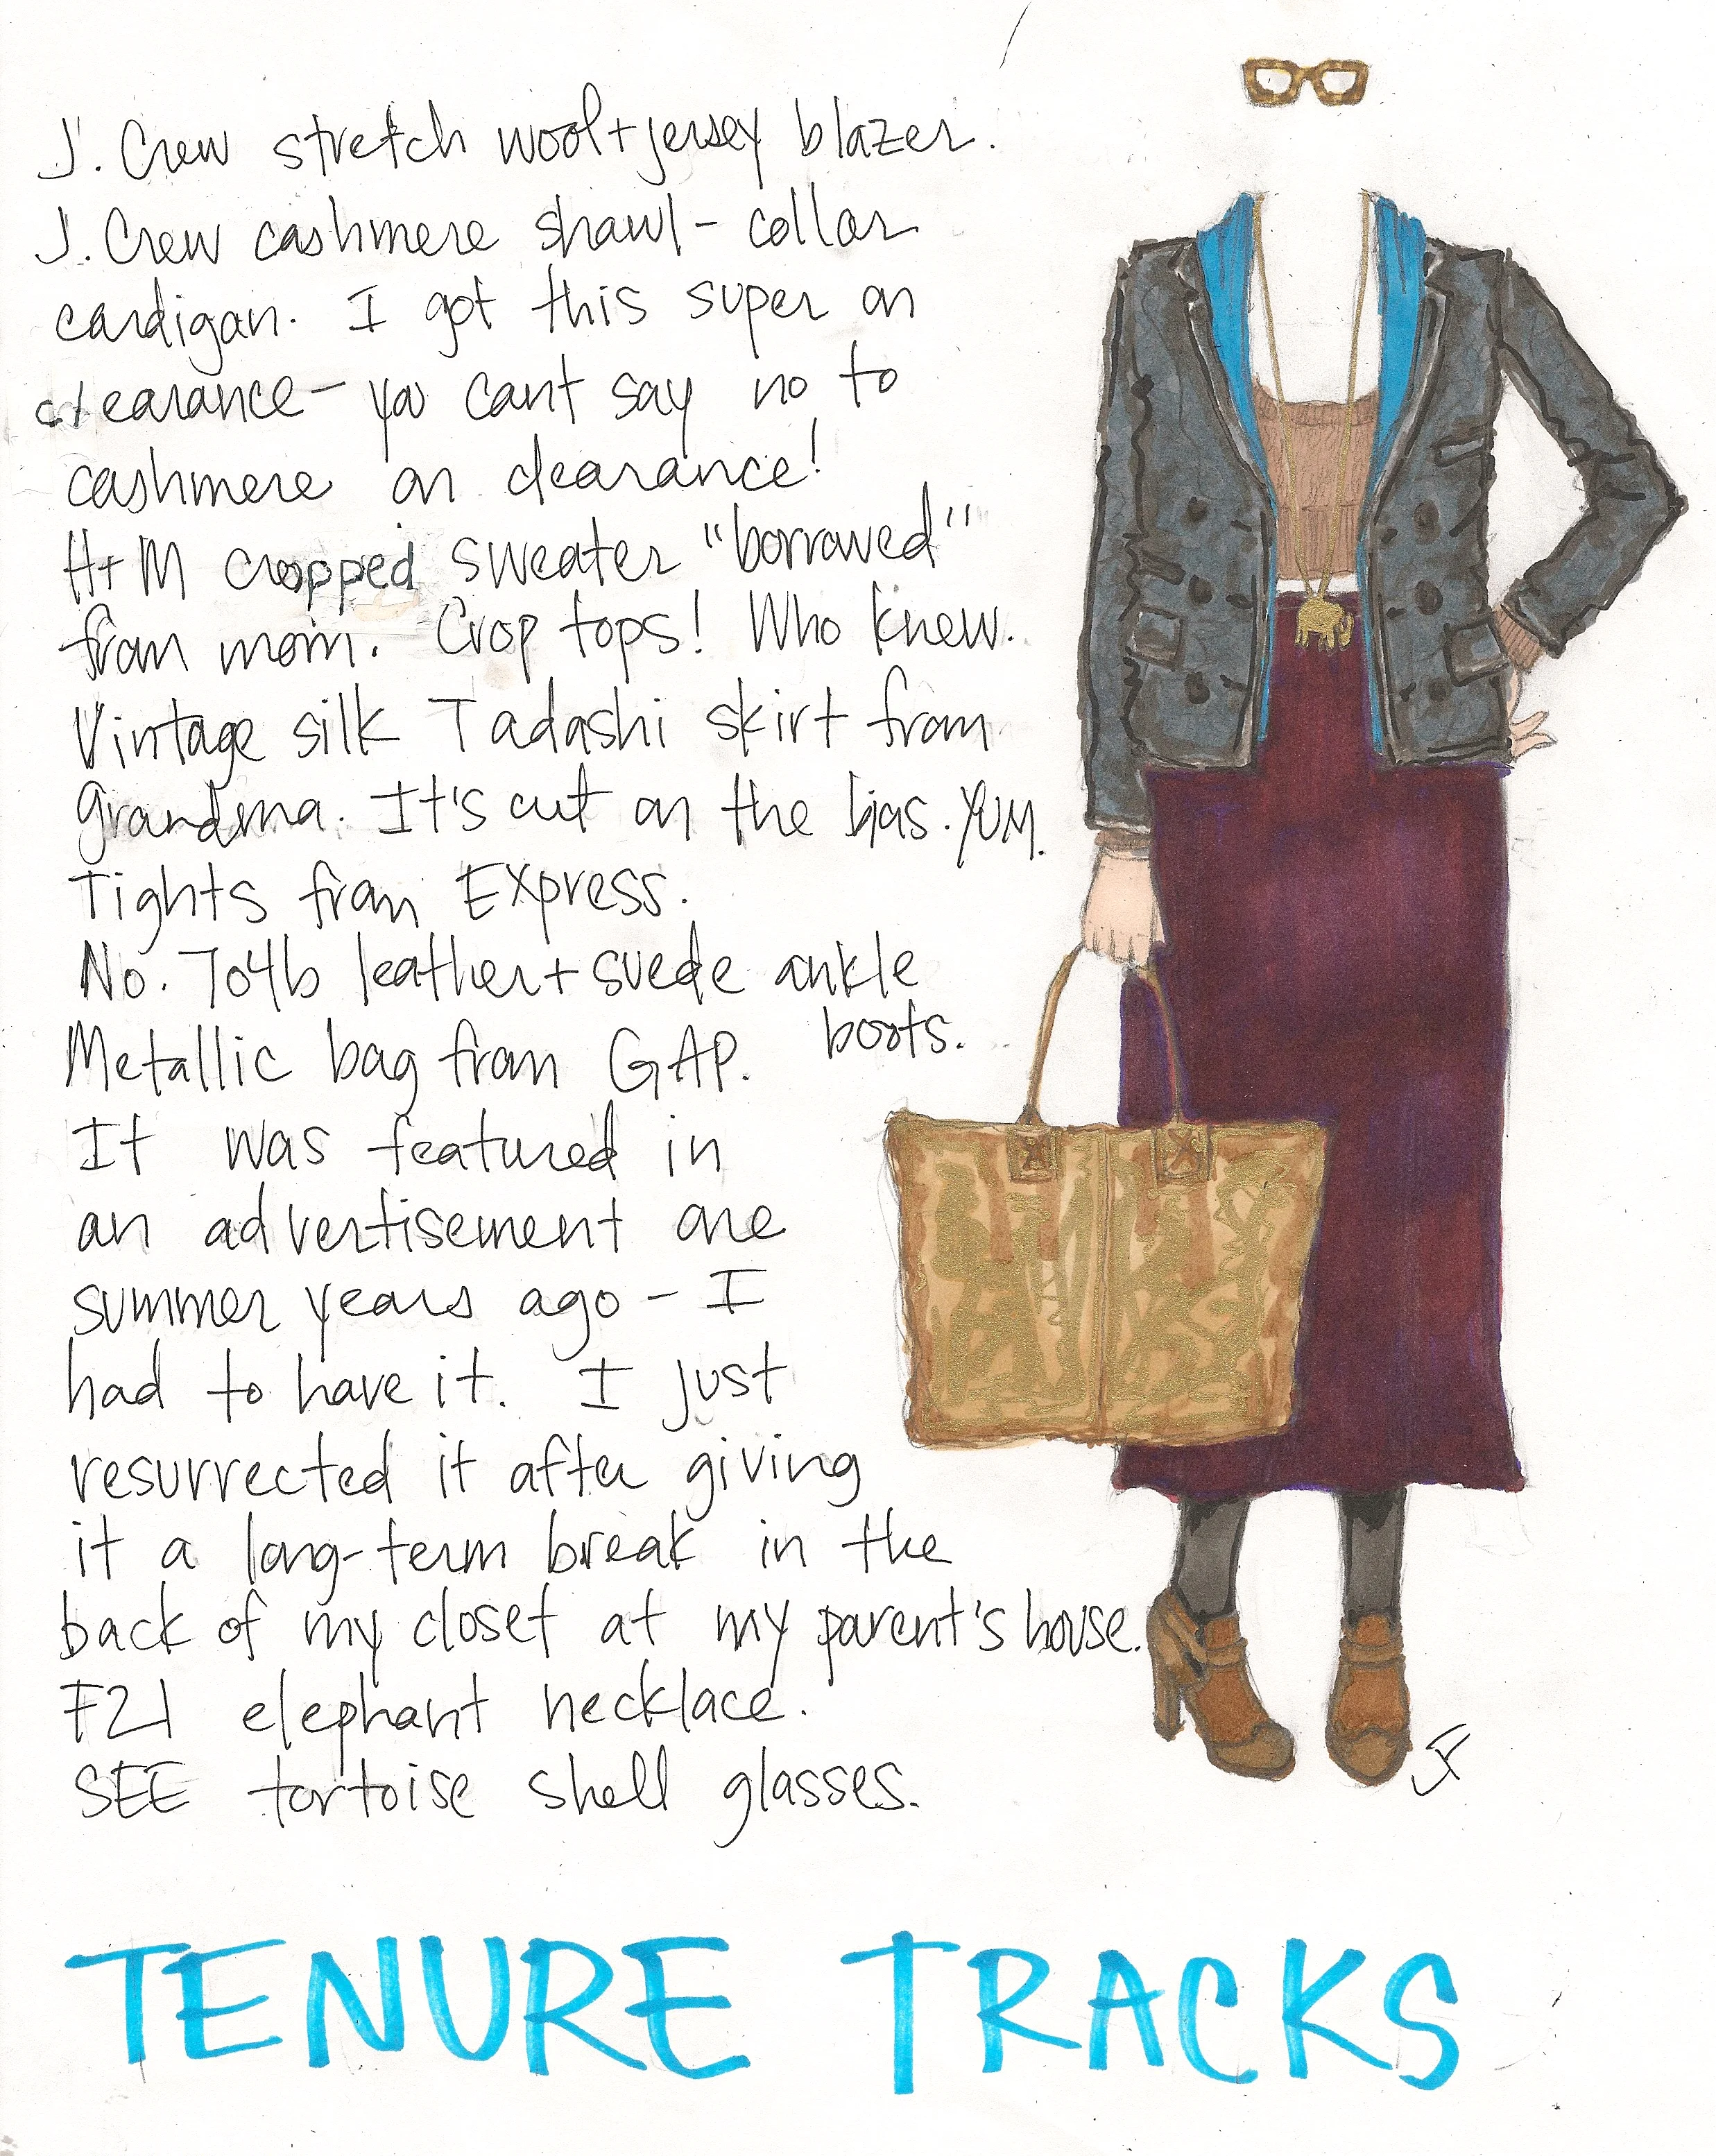 J. Crew stretch wool+jersey blazer.
J. Crew cashmere shawl-collar
cardigan. I got this super on
clearance- you cant say no to
cashmere on clearance!
H+M cropped sweater "borrowed"
from mom. Crop tops! Who knew.
Vintage silk Tadashi skirt from
grandma. It's cut on the bias. YUM.
Tights from Express.
No. 704b leather+suede ankle
boots.
Metallic bag from GAP.
It was featured in
an advertisement one
summer years ago - I
had to have it. I just
resurrected it after giving
it a long-term break in the
back of my closet at my parent's house.
F21 elephant necklace.
SEE tortoise shell glasses.
JF
TENURE TRACKS